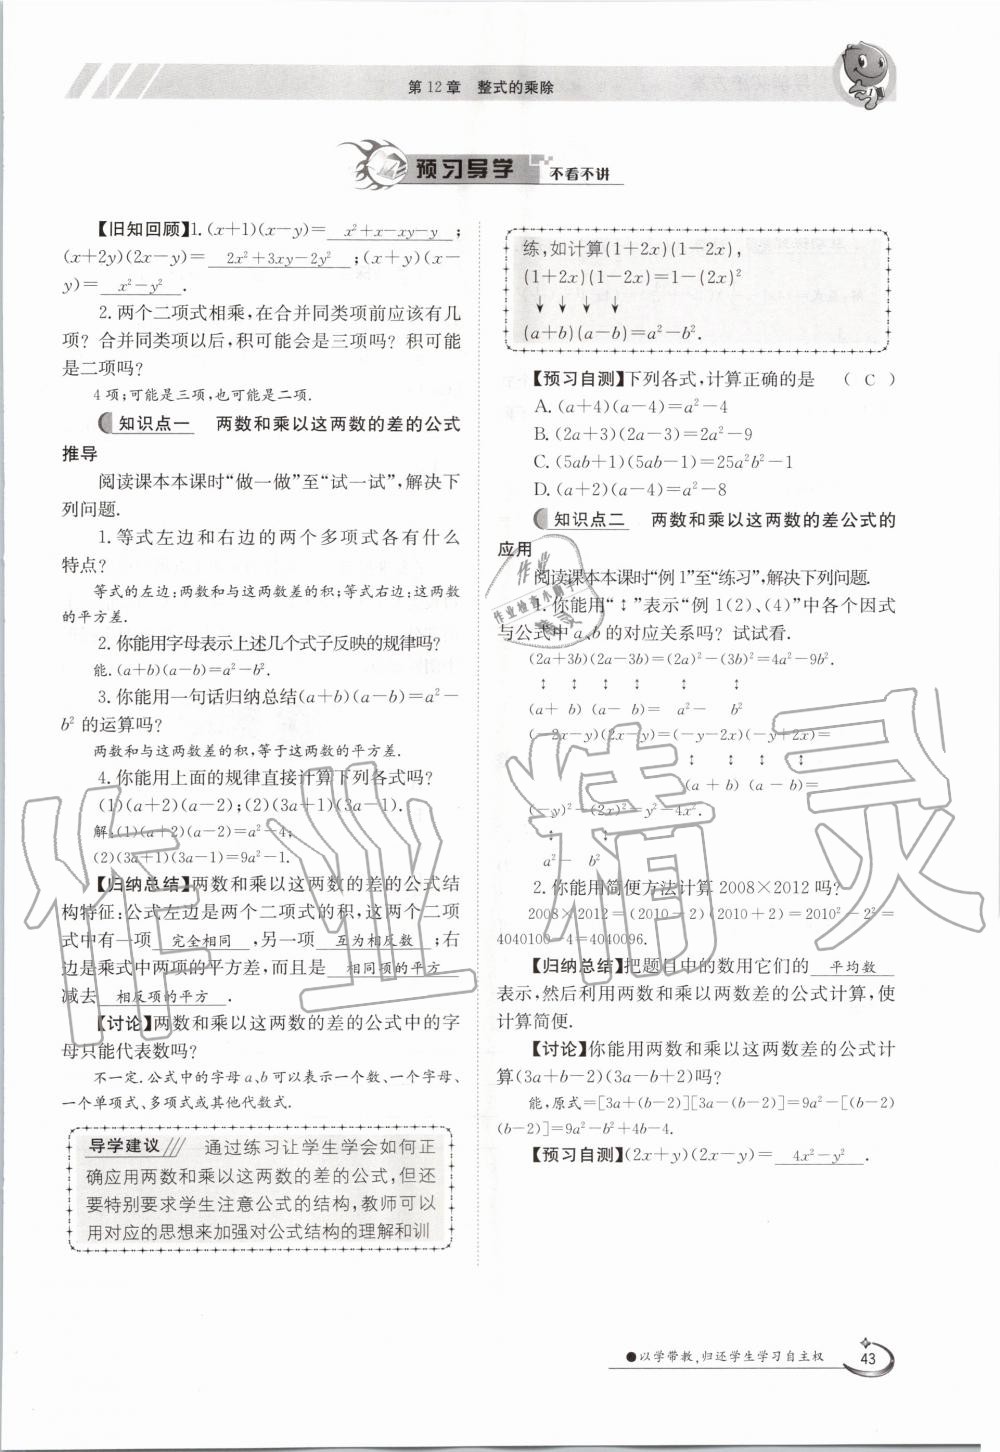 第12章 整式的乘除
预习导学 不看不讲
【旧知回顾】1.(x+1)(x-y)= x²+x-xy-y ;
(x+2y)(2x-y)= 2x²+3xy-2y² ;(x+y)(x-
y)= x²-y² .
2.两个二项式相乘,在合并同类项前应该有几
项?合并同类项以后,积可能会是三项吗?积可能
是二项吗?
4项;可能是三项,也可能是二项.
知识点一 两数和乘以这两数的差的公式
推导
阅读课本本课时“做一做”至“试一试”,解决下
列问题.
1.等式左边和右边的两个多项式各有什么
特点?
等式的左边:两数和与这两数差的积;等式右边:这两数
的平方差.
2.你能用字母表示上述几个式子反映的规律吗?
能.(a+b)(a-b)=a²-b².
3.你能用一句话归纳总结(a+b)(a-b)=a²-
b²的运算吗?
两数和与这两数差的积,等于这两数的平方差.
4.你能用上面的规律直接计算下列各式吗?
(1)(a+2)(a-2);(2)(3a+1)(3a-1).
解:(1)(a+2)(a-2)=a²-4;
(2)(3a+1)(3a-1)=9a²-1.
【归纳总结】两数和乘以这两数的差的公式结
构特征:公式左边是两个二项式的积,这两个二项
式中有一项 完全相同 ,另一项 互为相反数 ;右
边是乘式中两项的平方差,而且是 相同项的平方
减去 相反项的平方 .
【讨论】两数和乘以这两数的差的公式中的字
母只能代表数吗?
不一定.公式中的字母a、b可以表示一个数、一个字母、
一个单项式、多项式或其他代数式.
导学建议 通过练习让学生学会如何正
确应用两数和乘以这两数的差的公式,但还
要特别要求学生注意公式的结构,教师可以
用对应的思想来加强对公式结构的理解和训
练,如计算(1+2x)(1-2x),
(1+2x)(1-2x)=1-(2x)²
↓ ↓ ↓ ↓ ↓
(a+b)(a-b)=a²-b².
【预习自测】下列各式,计算正确的是 ( C )
A.(a+4)(a-4)=a²-4
B.(2a+3)(2a-3)=2a²-9
C.(5ab+1)(5ab-1)=25a²b²-1
D.(a+2)(a-4)=a²-8
知识点二 两数和乘以这两数的差公式的
应用
阅读课本本课时“例1”至“练习”,解决下列问题.
1.你能用“↕”表示“例1(2)、(4)”中各个因式
与公式中a、b的对应关系吗?试试看.
(2a+3b)(2a-3b)=(2a)²-(3b)²=4a²-9b².
↕ ↕ ↕ ↕ ↕ ↕
(a+ b) (a- b)= a²- b²
(-2x-y)(2x-y)=(-y-2x)(-y+2x)=
↕ ↕ ↕ ↕
(a + b) (a - b)=
(-y)²-(2x)²=y²-4x².
↕ ↕
a²- b²
2.你能用简便方法计算2008×2012吗?
2008×2012=(2010-2)(2010+2)=2010²-2²=
4040100-4=4040096.
【归纳总结】把题目中的数用它们的 平均数
表示,然后利用两数和乘以这两数差的公式计算,使
计算简便.
【讨论】你能用两数和乘以这两数差的公式计
算(3a+b-2)(3a-b+2)吗?
能,原式=[3a+(b-2)][3a-(b-2)]=9a²-[(b-2)
(b-2)]=9a²-b²+4b-4.
【预习自测】(2x+y)(2x-y)= 4x²-y² .
●以学带教,归还学生学习自主权
43
作业精灵
作业
作业检查小助手
精灵